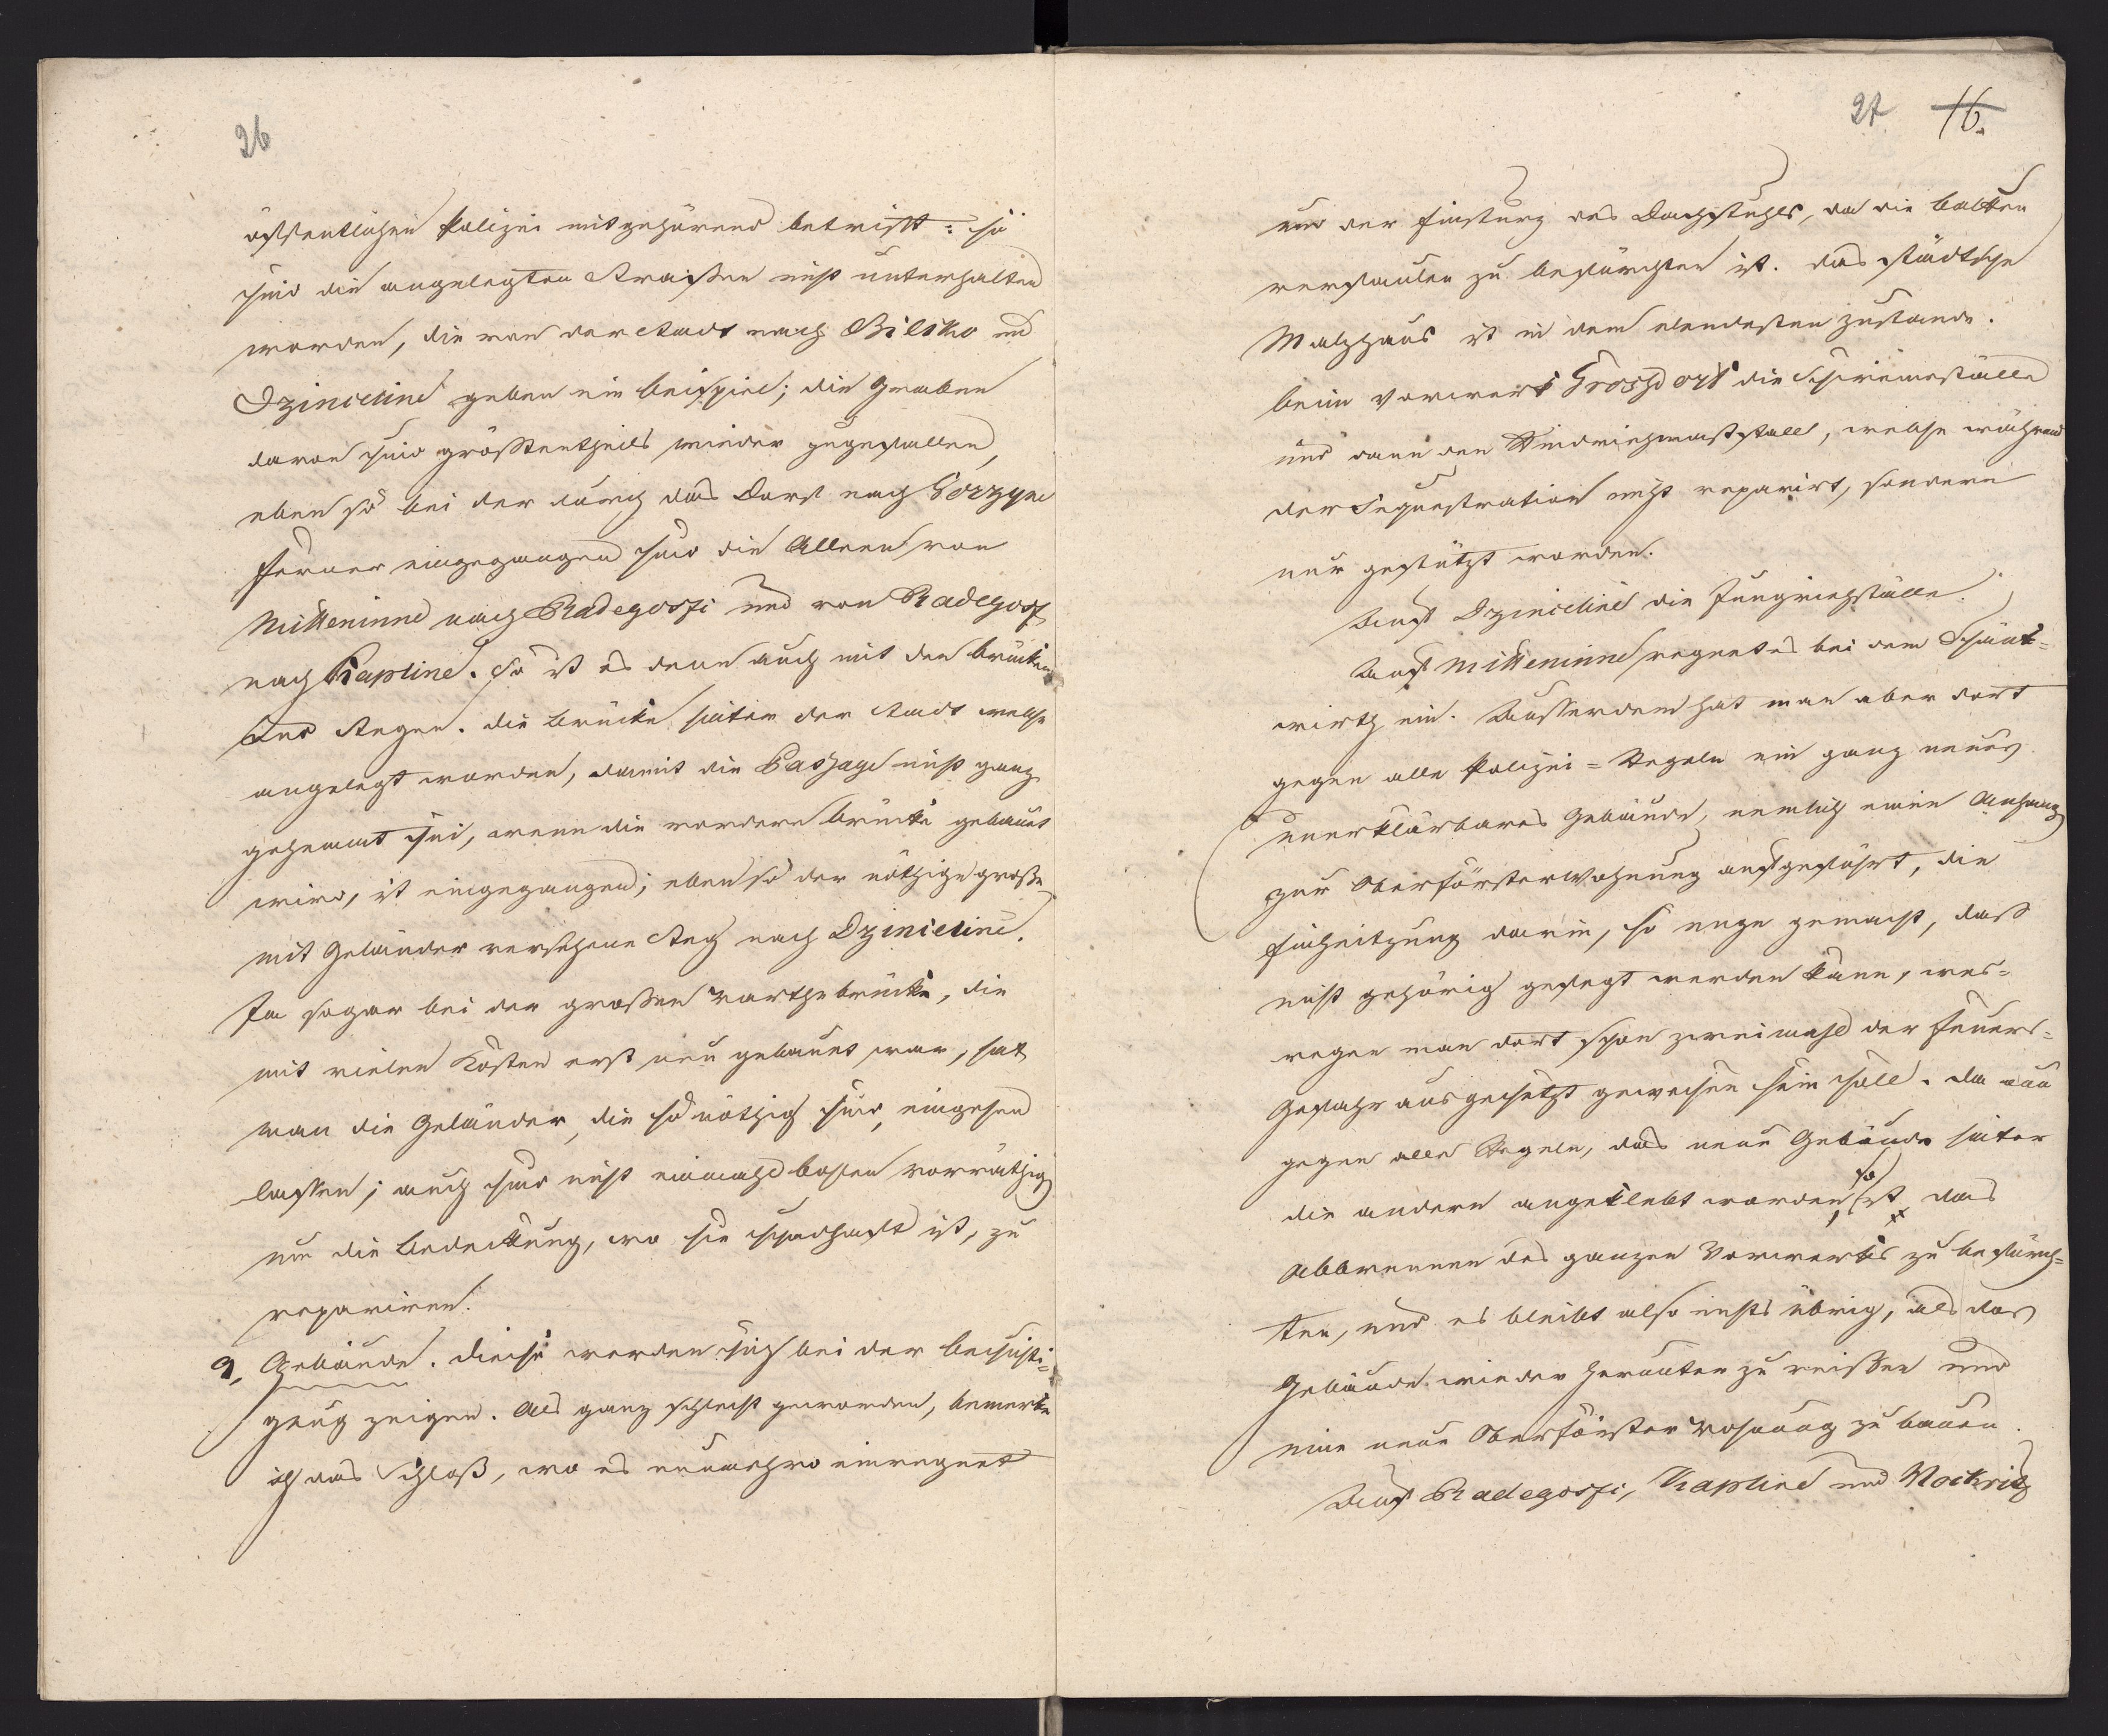 26
öffentlichen Polizei mitgehörend betrifft: so
sind die angelegten Strassen nicht unterhalten
worden, die von der Stadt nach Bilsko und
Dzincelind geben ein Beispiel; die Graben
davon sind größtentheils wieder zugefallen,
eben so bei der durch das Dorf nach Gorzyn
ferner eingegangen sind die Alleen von
Mitteninne nach Radegoszi und von Radegosz
nach Kapline. So ist es denn auch mit den Brücken
und Stegen. Die Brücke hinter der Stadt welche
angelegt worden, damit die Passage nicht ganz
gehemmt sei, wenn die vordere Brücke gebaut
wird, ist eingegangen; eben so der nöthige große
mit Geländer versehene Steg nach Dzinceline.
Ja sogar bei der großen Warthebrücke, die
mit vielen Kosten erst neu gebauet war, hat
man die Geländer, die so nöthig sind, eingehen
lassen; auch sind nicht einmahl Bolen vorräthig
um die Bedeckung, wo sie schadhaft ist, zu
repariren.
9, Gebäude. Diese werden sich bei der Besichti-
gung zeigen. Als ganz schlecht geworden, bemerke
ich das Schloß, wo es nunmehro einregnet
27 16.
und der Einsturz des Dachstuhls, da die Balken
verfaulen zu befürchten ist. Das städtsche
Malzhaus ist in dem elendesten Zustande.
beim Vorwerk Groszdorf die Schweineställe
und dann den Rindviehmaststall, welche während
der Sequestration nicht reparirt, sondern
nur gestützt worden.
Auf Dzinceline die Jungviehställe.
Auf Mitteninne regnet es bei dem Schänk-
wirth ein. Ausserdem hat man aber dort
gegen alle Polizei-Regeln ein ganz neues
unerklärbares Gebäude, nemlich einen Anhang
zur Oberförsterwohnung aufgeführt, die
Einheitzung darin, so enge gemacht, dass
nicht gehörig gefegt werden kann, wes-
wegen man dort schon zweimahl der Feuers-
Gefahr ausgesetzt gewesen sein soll. Da nun
gegen alle Regeln, das neue Gebäude hinter
die andern angeklebt worden, so ist das
Abbrennen des ganzen Vorwerks zu befürch-
ten, und es bleibt also nichts übrig, als das
Gebäude wieder herunter zu reissen und
eine neue Oberförster Wohnung zu bauen.
Auf Radegoszi, Kapline und Mockritz